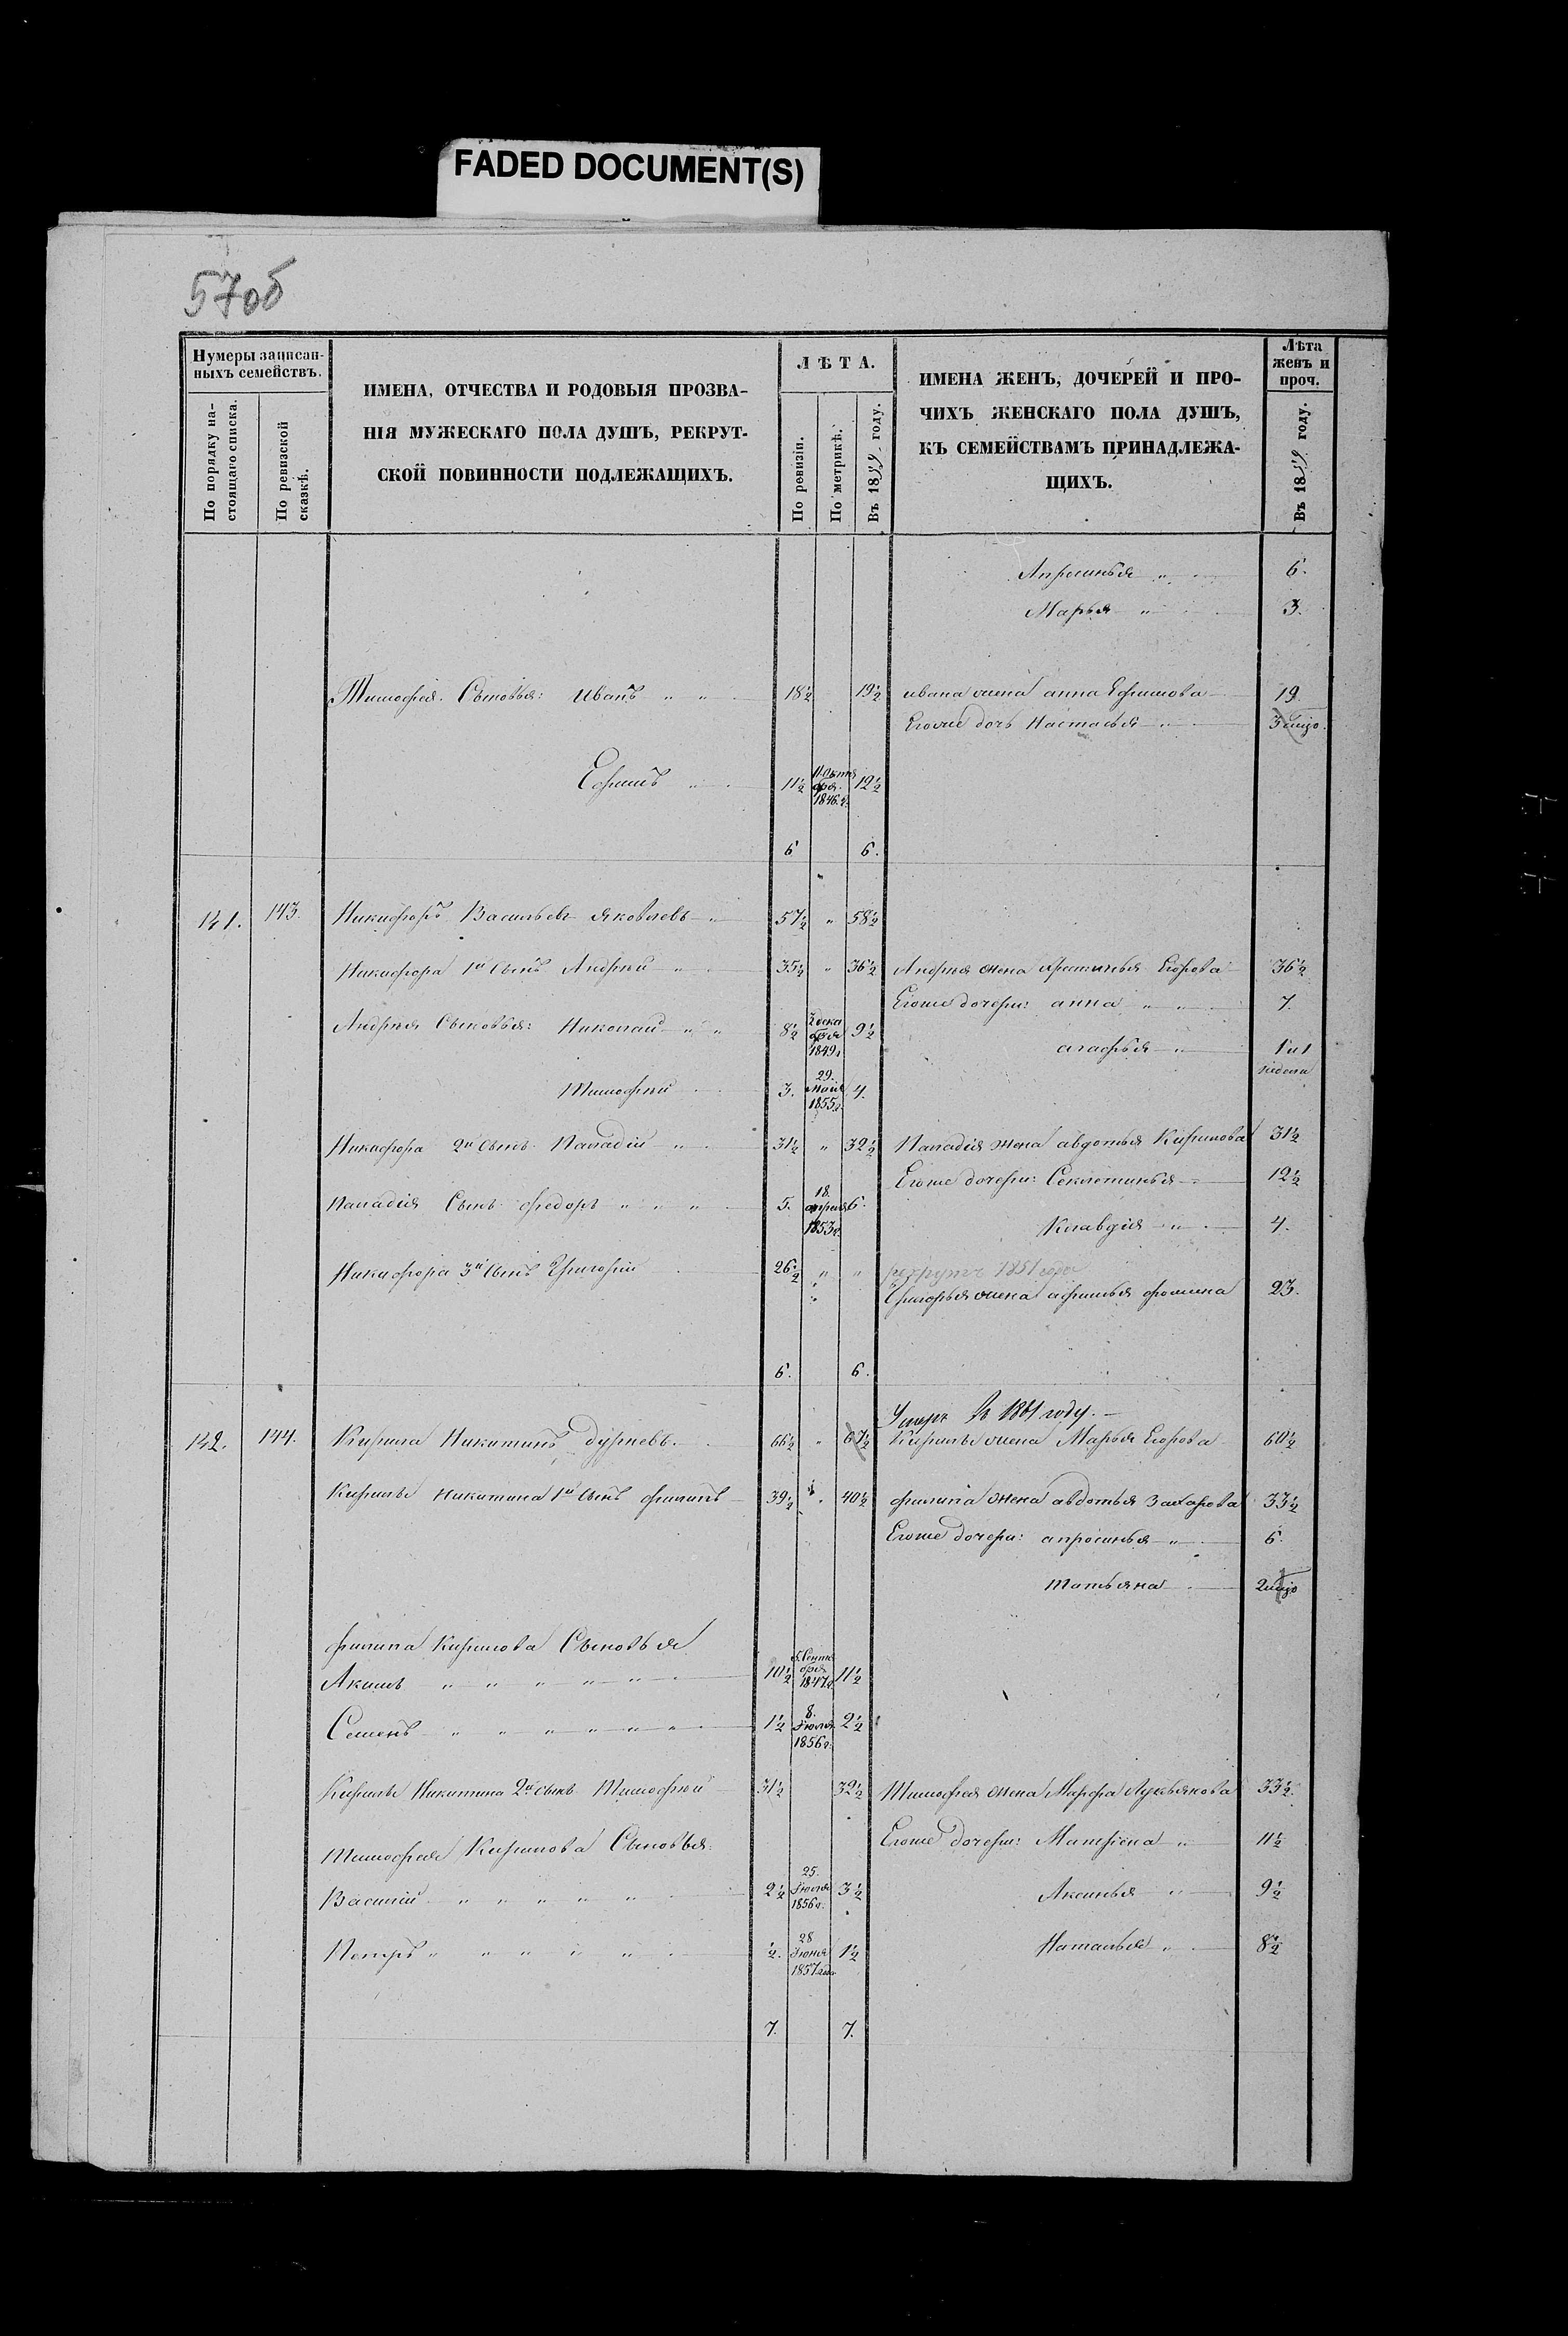 FADED DOCUMENT(S)
57об
Нумеры записан-
ныхъ семействъ.
По порядку на-
стоящаго списка.
По ревизской
сказкѣ.
ИМЕНА, ОТЧЕСТВА И РОДОВЫЯ ПРОЗВА-
НІЯ МУЖЕСКАГО ПОЛА ДУШЪ, РЕКРУТ-
СКОЙ ПОВИННОСТИ ПОДЛЕЖАЩИХЪ.
ЛѢТА.
По ревизіи.
По метрикѣ.
Въ 1859 году.
ИМЕНА ЖЕНЪ, ДОЧЕРЕЙ И ПРО-
ЧИХЪ ЖЕНСКАГО ПОЛА ДУШЪ,
КЪ СЕМЕЙСТВАМЪ ПРИНАДЛЕЖА-
ЩИХЪ.
Лѣта
женъ и
проч.
Въ 1859 году.
Апросинья " 6.
Марья " 3.
Тимофея Сыновья: Иванъ " " 18½ 19½ ивана жена анна Ефимова 19
Егоже дочь Настасья " 3
Ефимъ " 11½ 1846 г. 12½
6 6.
141. 143. Никифоръ Васильевъ яковлевъ " 57½ " 58½
Никифора 1й Сынъ Андрѣй " 35½ " 36½ Андрея жена Крестинья Егорова 36½
Егоже дочери: анна " " 7.
Андрея Сыновья: Николай " " 8½ дека
бря
1849 9½
агафья " 1 и 1
недели
Тимофѣй 3. 29.
Маія
1855г. 4.
Никифора 2й Сынъ Паладій " 31½ " 32½ Паладія жена авдотья Кирилова 31½
Егоже дочери: Секлетинья 12½
Паладія Сынъ федоръ " " " 5. 18.
апреля
1853г. 6.
Клавдія " 4.
Никифора 3й Сынъ Григорій 26½ " " рекрутъ 1851 года
Григорья жена афимья фомина 23.
6. 6.
Умеръ Въ 1861 году.
142. 144. Кирила Никитинъ Дурневъ. 66½ " 67½ Кирилы жена Марья Егорова 60½
Кирилы Никитина 1й Сынъ филипъ 39½ " 40½ филипа жена авдотья Захарова 33½
Егоже дочери: апросинья " 6.
татьяна 2
филипа Кирилова Сыновья
Акимъ " " " " " 10½ Сентя
бря
1847г. 11½
Семенъ " " " " " " 1½ 8.
Июля
1856г. 2½
Кирилы Никитина 2й Сынъ Тимофѣй 31½ 32½ Тимофея жена Марфа Лукьянова 33½
Тимофея Кирилова Сыновья: Егоже дочери: Матрена " 11½
Василій " " " " " 2½ 25.
Июля
1856г. 3½ Аксинья " 9½
Петръ " " " " " ½. 28
Июня
1857 1½ Наталья " 8½
7. 7.